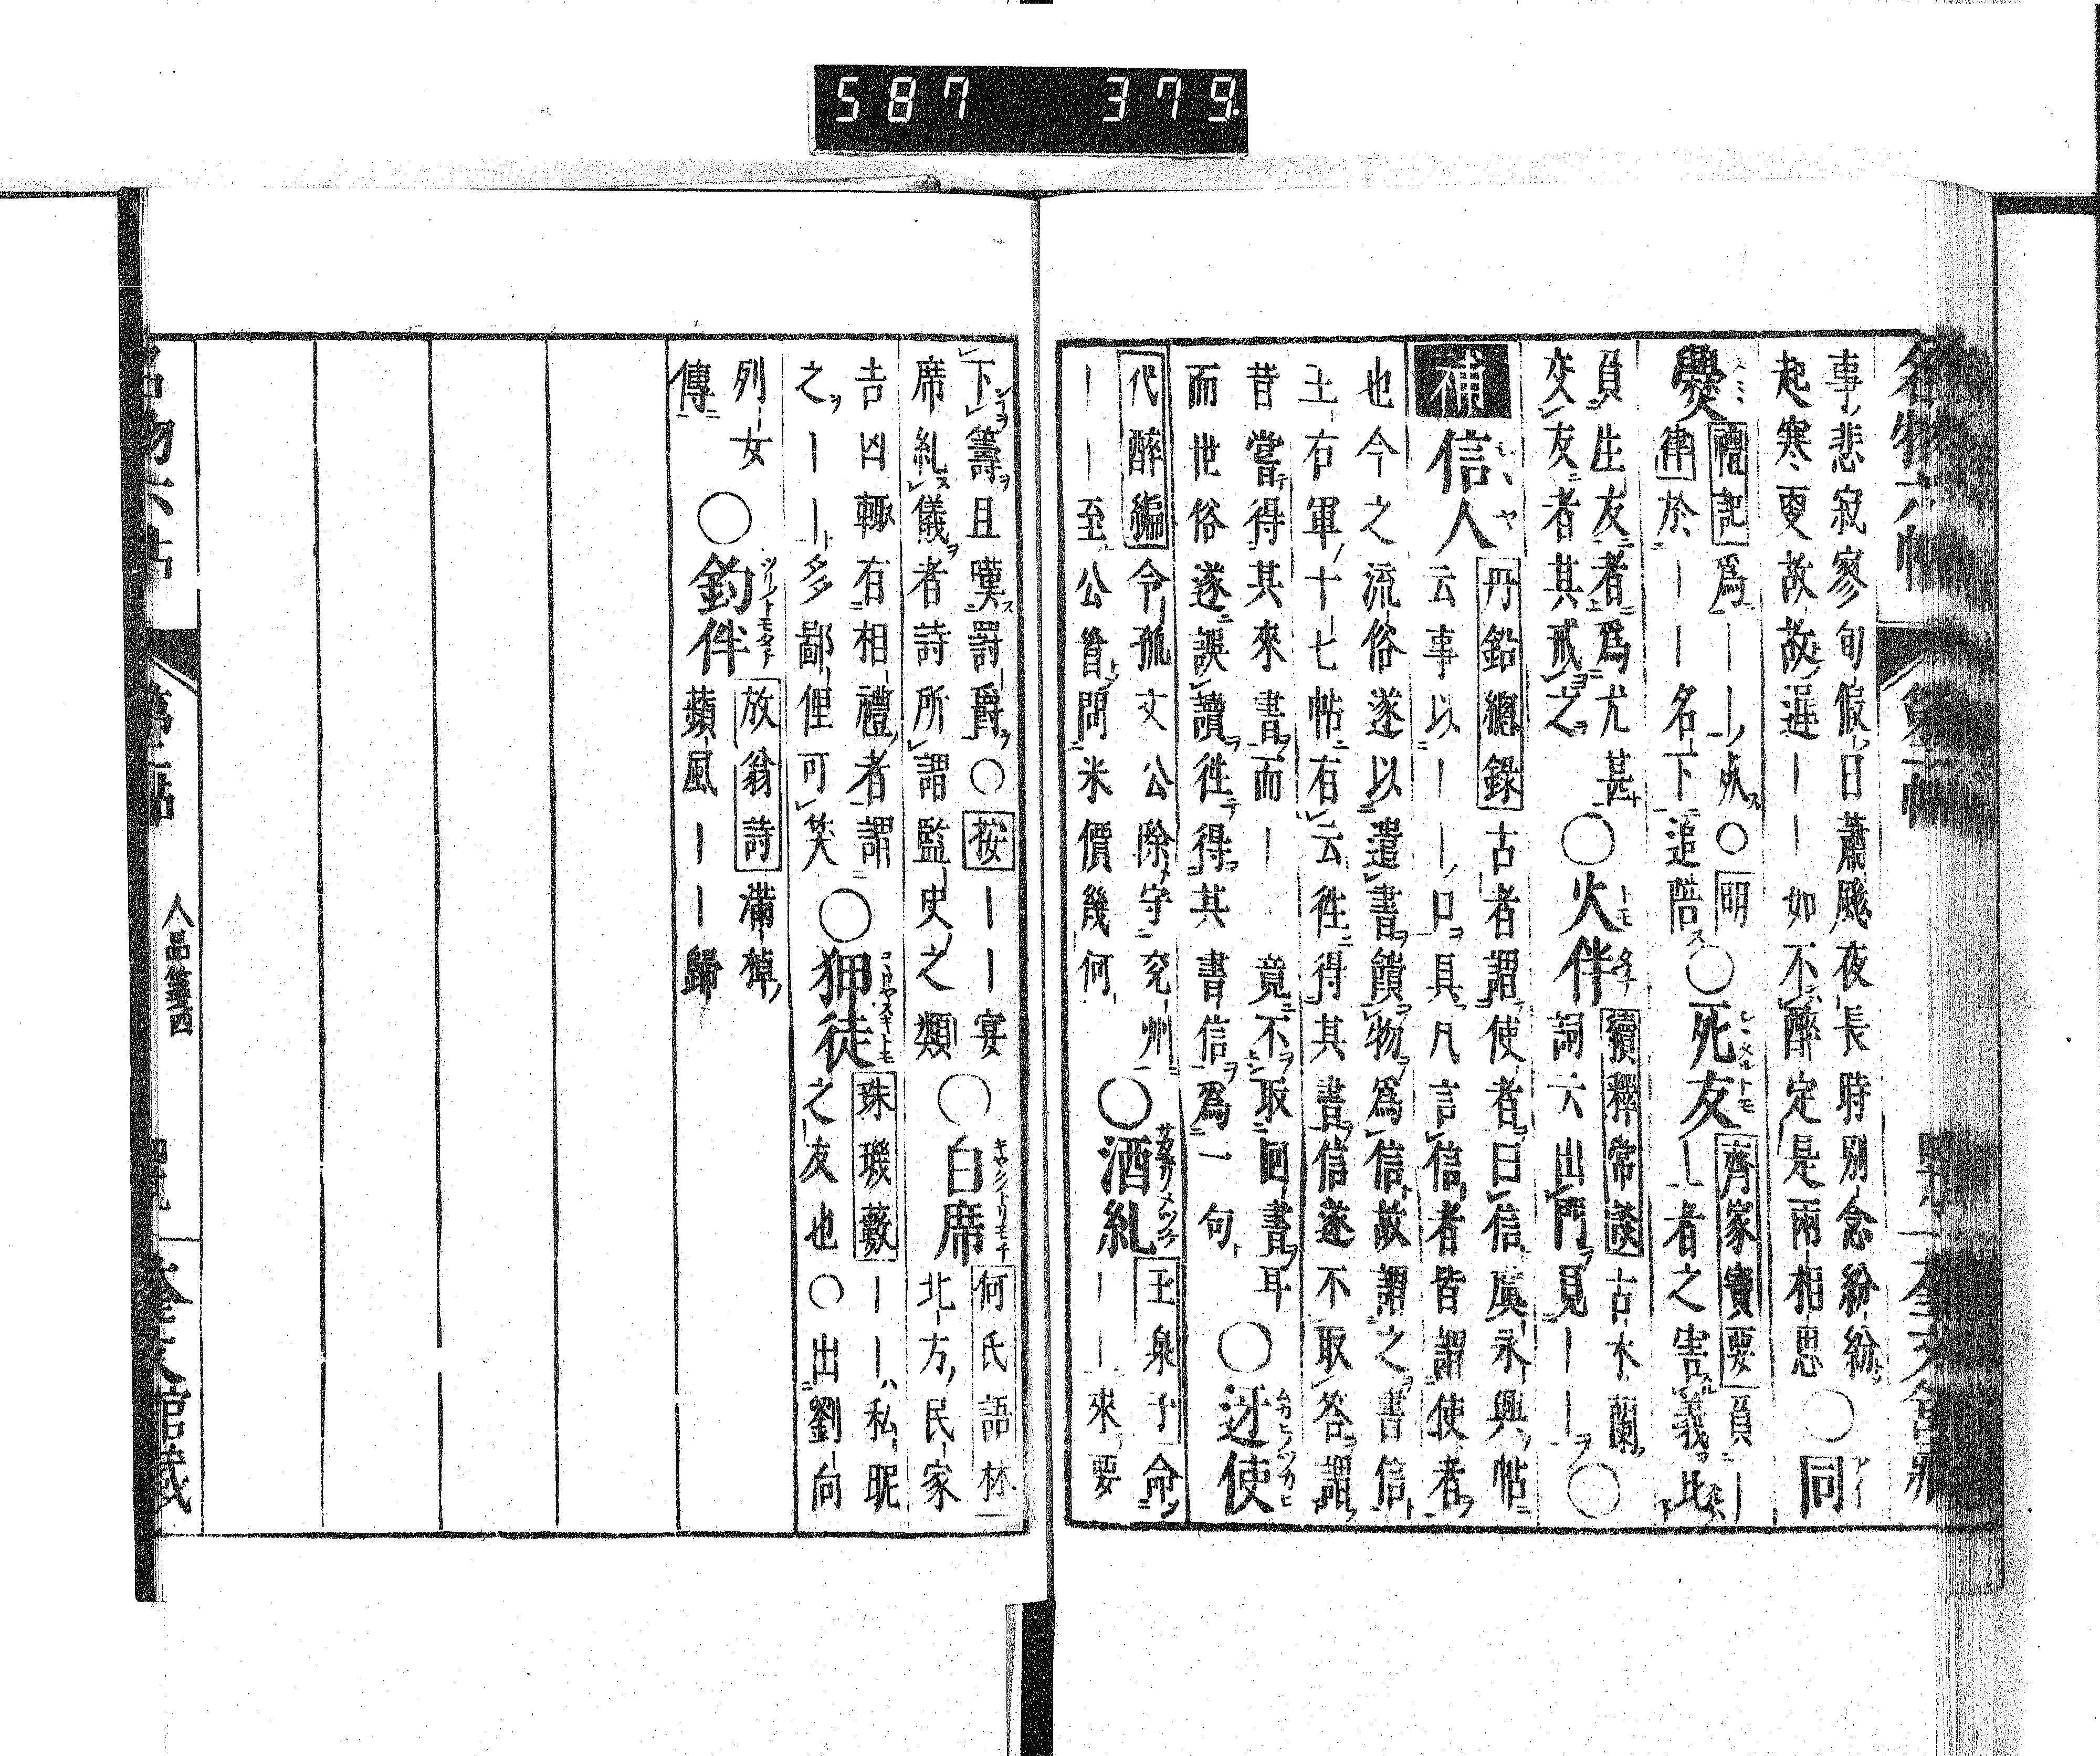 587 379.
事悲寂寥旬假日蕭颼夜長時別念紛紛
起寒更故故遲｜｜如不醉定是兩相思 〇同
爨 禮記 爲｜｜｜ 〇明
律 於｜｜名下追陪 〇死友 齊家寶要 負｜
｜者之害義比
負生友者爲尤甚
交友者其戒之 〇火伴 續釋常談 古木蘭
詞云出門見｜｜ 〇
補 信人 丹鉛總錄 古者謂使者曰信眞永興帖
云事以｜｜口具凡言信者皆謂使者
也今之流俗遂以遣書饋物爲信故謂之書信
王右軍十七帖有云往得其書信遂不取答謂
昔嘗得其來書而｜竟不取囘書耳
而世俗遂誤讀往得其書信爲一句 〇迓使
代醉編 令孤文公除守兗州
｜｜至公首問米價幾何 〇酒糺 玉泉子 命
｜｜來要
下籌且嘆罸爵 〇 按 ｜｜宴
席糺儀者詩所謂監史之類 〇白席 何氏語林
北方民家
吉凶輙有相禮者謂
之｜｜多鄙俚可笑 〇狎徒 珠璣藪 ｜｜私昵
之友也 〇出劉向
列女
傳 〇釣伴 放翁詩 滿棹
蘋風｜｜歸
人品箋四